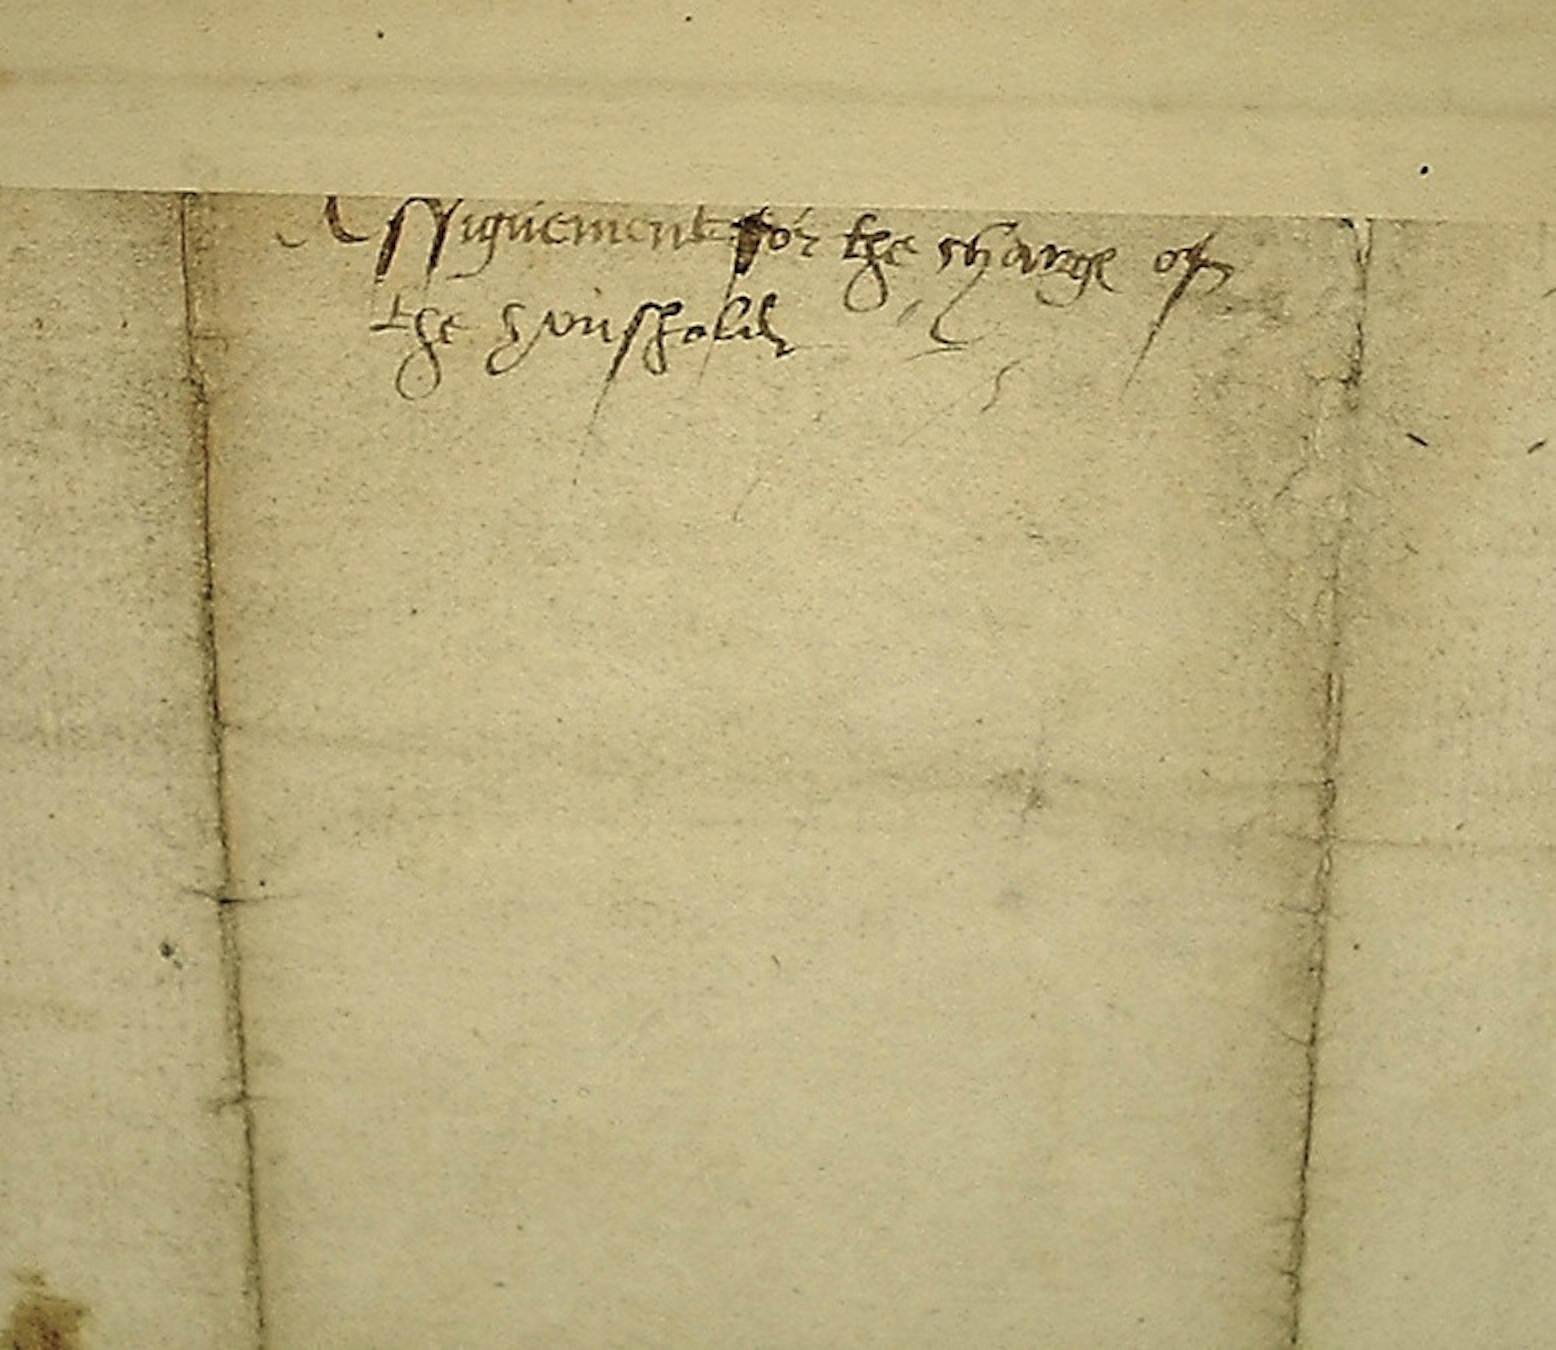 Assignement for the charge of
the housholde